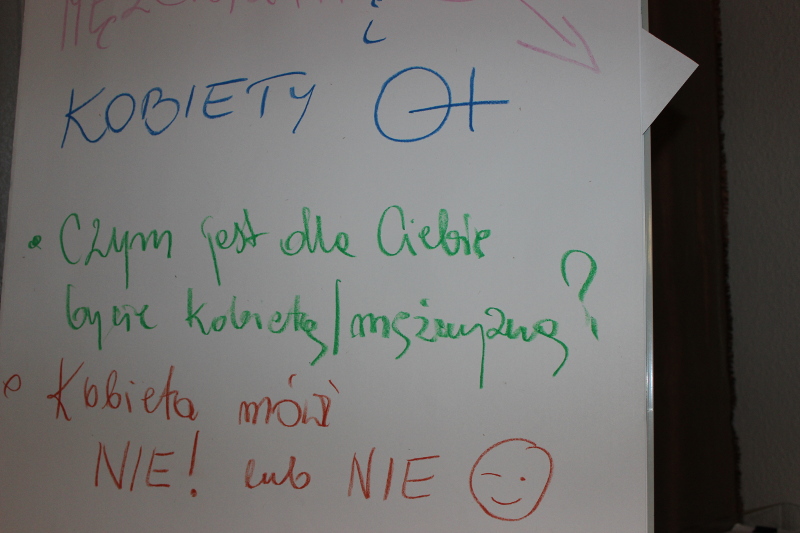 i
KOBIETY
• Czym jest dla Ciebie
bycie kobietą/mężczyzną?
• Kobieta mówi
NIE! lub NIE